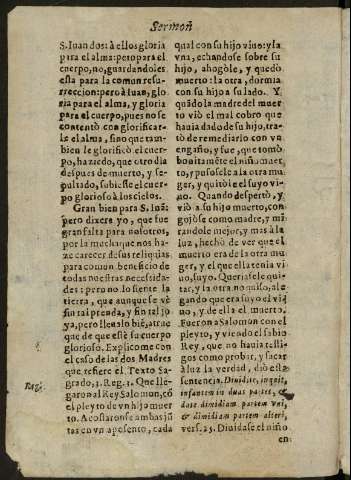 Sermoñ
S. Iuan dos: à ellos gloria
para el alma: pero para el
cuerpo, no, guardandoles
esta para la comun resu-
rreccion: pero à Iuan, glo
ria para el alma, y gloria
para el cuerpo, pues no se
contentò con glorificar-
le el alma, sino que tam-
bien le glorificò el cuer-
po, haziẽdo, que otro dia
despues de muerto, y se-
pultado, subiesse el cuer-
po glorioso à los cielos.
Gran bien para S. Iuã:
pero dixere yo, que fue
gran falta para nosotros,
por la mucha que nos ha-
ze carecer de sus reliquias
para comun beneficio de
todas nuestras necessida-
des: pero no lo siente la
tierra, que aunque se vè
sin tal prenda, y sin tal jo
ya, pero lleualo biẽ, atrue
que de que estè su cuerpo
glorioso. Explicome con
el caso de las dos Madres
que refiere el Texto Sa-
grado, 3. Reg. 3. Que lle-
garon al Rey Salomon, cõ
el pleyto de vn hijo muer
to. Acostaronse ambas jũ
tas en vn aposento, cada
Reg.
qual con su hijo viuo: y la
vna, echandose sobre su
hijo, ahogòle, y quedò
muerto: la otra, dormia
con su hijo a su lado. Y
quãdo la madre del muer
to viò el mal cobro que
hauia dado de su hijo, tra-
tò de remediarlo con vn
engaño, y fue, que tomò
bonitamẽte el niño muer
to, y pusosele a la otra mu
ger, y quitòle el suyo vi-
uo. Quando despertò, y
viò a su hijo muerto, con
gojòse como madre, y mi
randole mejor, y mas à la
luz, hechò de ver que el
muerto era de la otra mu
ger, y el que ella tenia vi
uo, suyo. Queriasele qui-
tar, y la otra no quiso, ale
gando que era suyo el viu
o, y de ella el muerto.
Fueron a Salomon con el
pleyto, y viendo el sabio
Rey, que no hauia testi-
gos como probar, y sacar
a luz la verdad, diò esta
sentencia. Diuidite, inquit,
infantem in duas partes, &
date dimidiam partem vni,
& dimidiam partem alteri,
vers. 25. Diuidase el niño
en